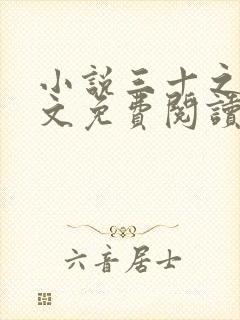 小說三十之
文免費閱讀
六音居士